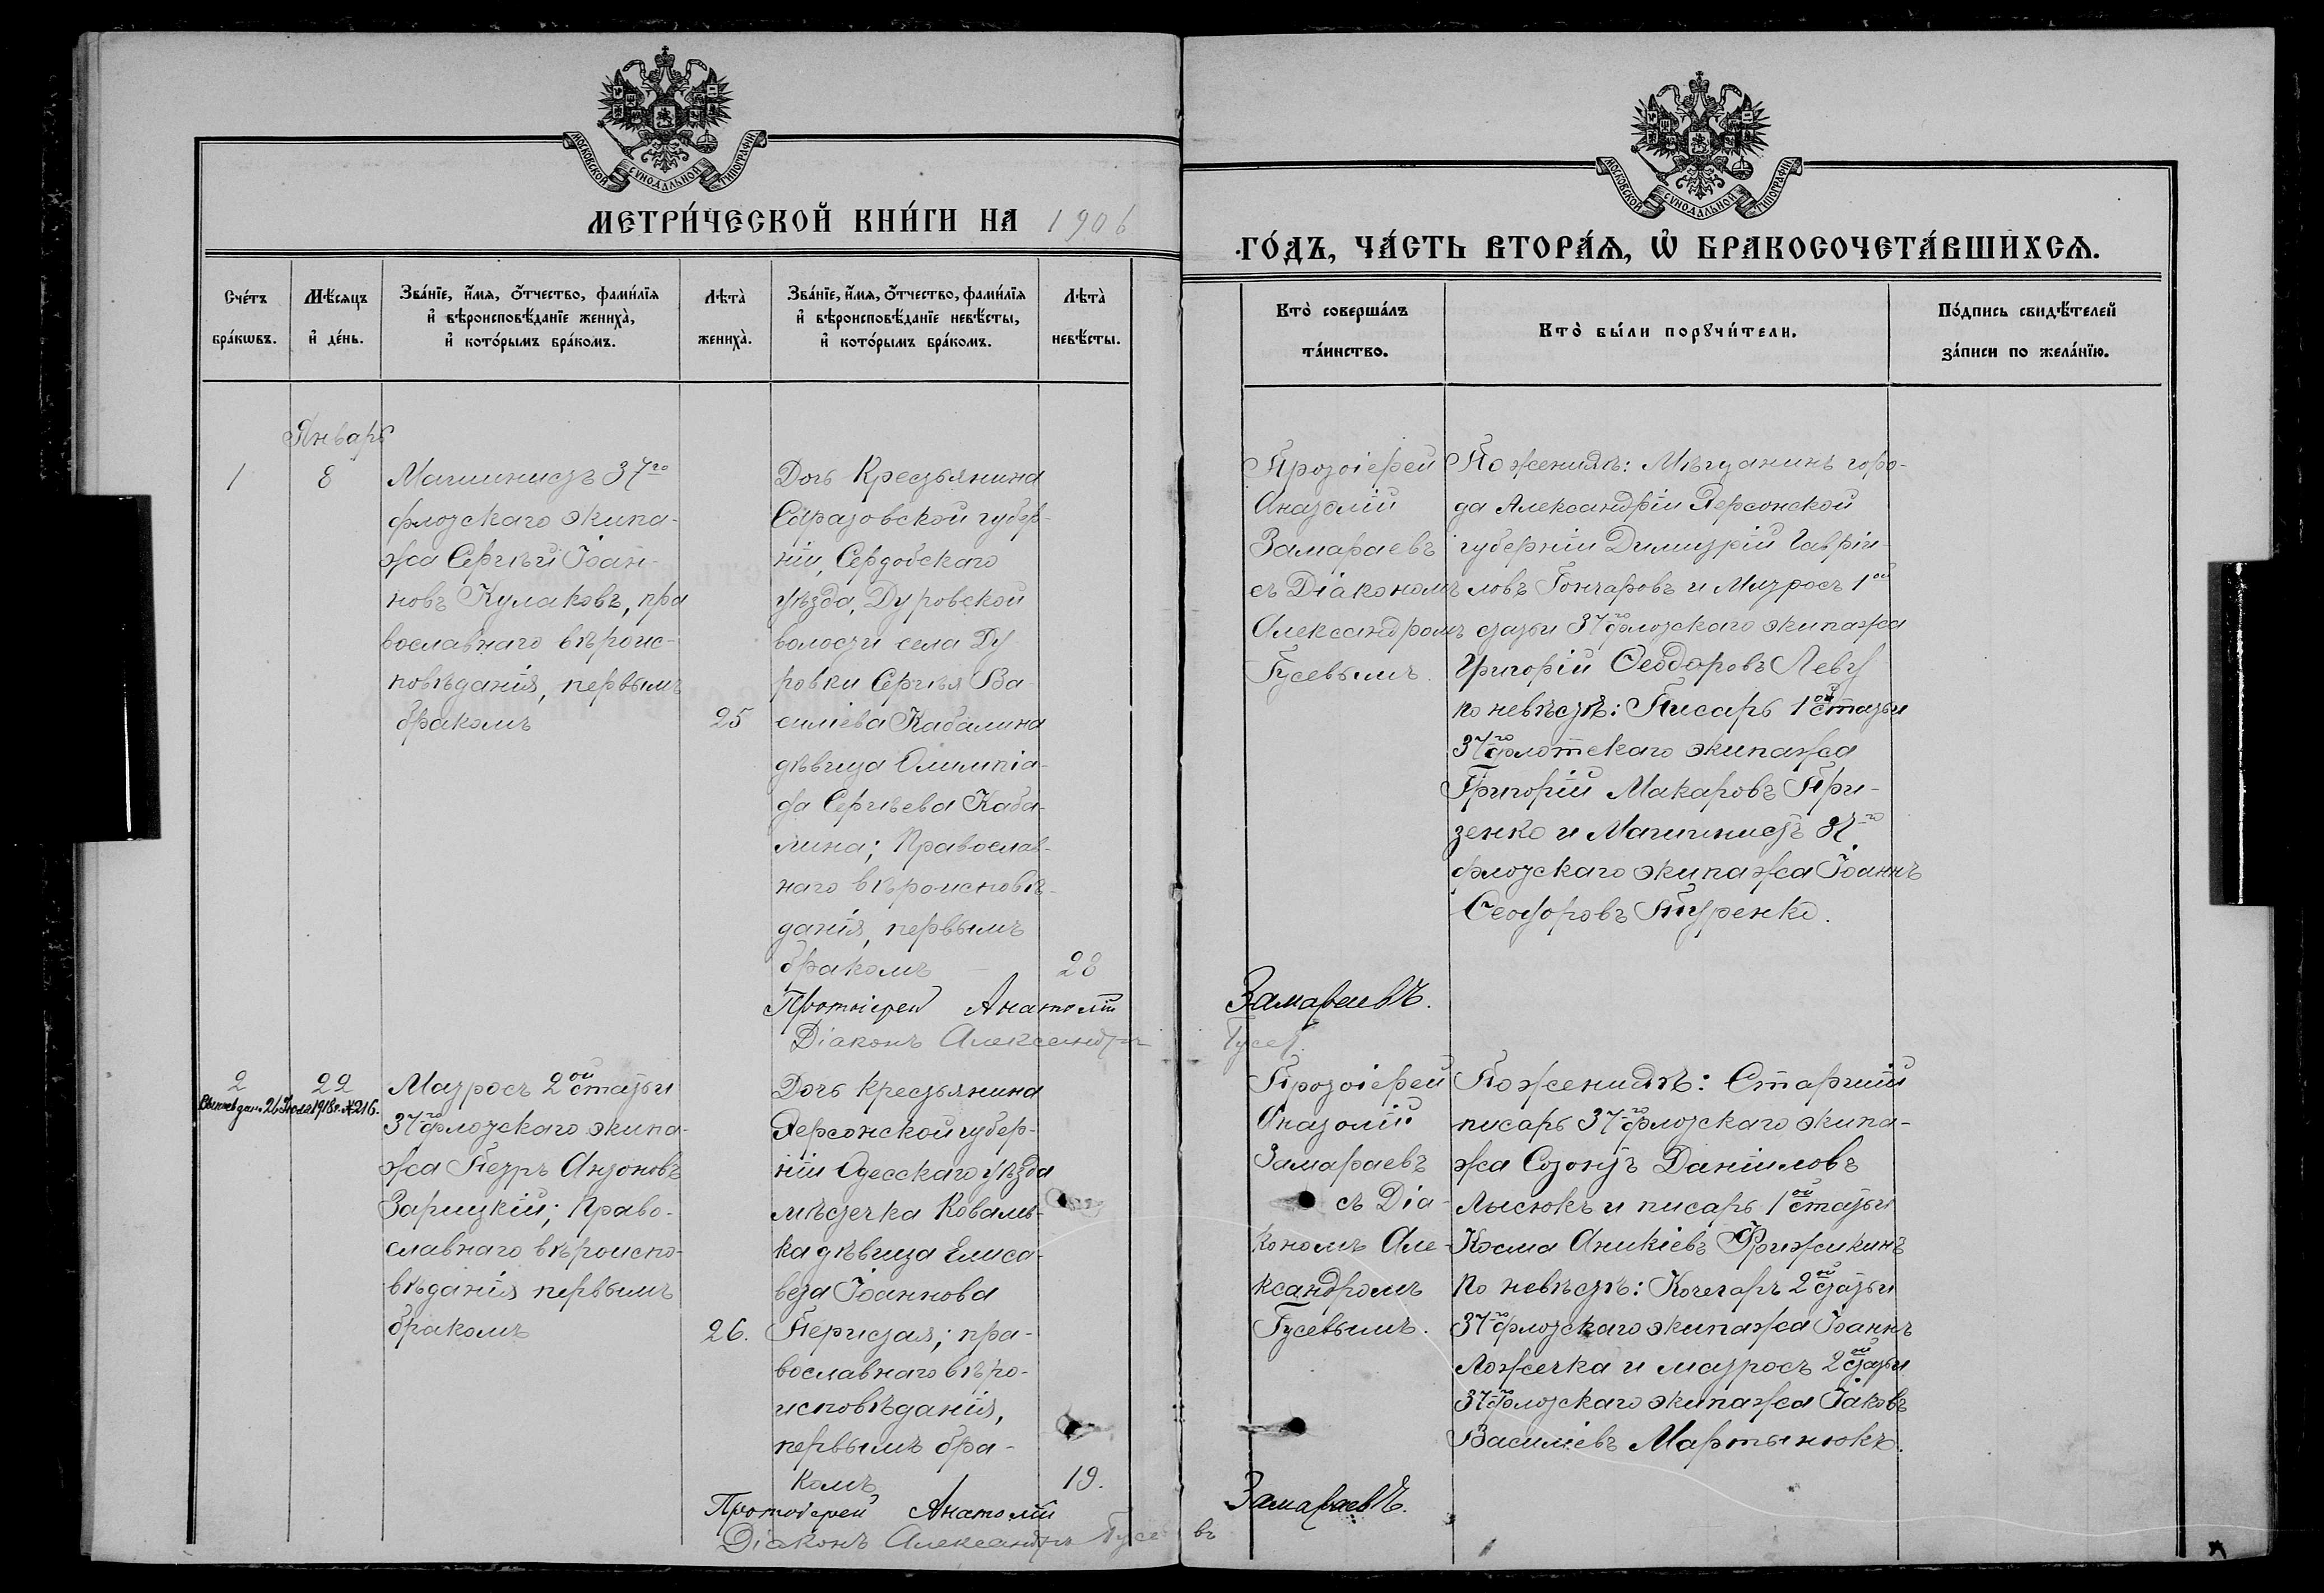 МОСКОВСКОЙ СѴНОДАЛЬНОЙ ТИПОГРАФІИ
МЕТРИ́ЧЕСКОЙ КНИ́ГИ НА 1906
Сче́тъ бра́кωвъ.
Мѣ́сяцъ и҆ де́нь.
Зва́нїе, и҆́мѧ, ѻ҆́тчество, фами́лїѧ
и҆ вѣроисповѣ́данїе жениха̀,
и҆ кото́рымъ бра́комъ.
Лѣта̀ жениха̀.
Зва́нїе, и҆́мѧ, ѻ҆́тчество, фами́лїѧ
и҆ вѣроисповѣ́данїе невѣ́сты,
и҆ кото́рымъ бра́комъ.
Лѣта̀ невѣ́сты.
Январь
1
8
Машинистъ 37го
флотскаго экипа-
жа Сергѣй Іоан-
новъ Кулаковъ, пра
вославнаго вѣроис-
повѣданія, первымъ
бракомъ
25
Дочь Крестьянина
Саратовской губер-
ніи, Сердобскаго
уѣзда, Дуровской
волости села Ду
ровки Сергѣя Ва-
силіева Кабалина
дѣвица Олимпіа-
да Сергѣева Каба-
лина; Православ-
наго вѣроисповѣ-
данія, первымъ
бракомъ —
28
Протоіерей Анатолій
Діаконъ Александръ
2
22
26 Іюля 1918 г. №216.
Матросъ 2ой статьи
37го флотскаго экипа-
жа Петръ Антоновъ
Зарицкій; Право-
славнаго вѣроиспо-
вѣданія первымъ
бракомъ
26.
Дочь крестьянина
Херсонской губер-
ніи Одесскаго уѣзда
мѣстечка Коваль-
ка дѣвица Елиса-
вета Іоаннова
Перистая; пра-
вославнаго вѣро-
исповѣданія,
первымъ бра-
комъ
19.
Протоіерей Анатолій
Діаконъ Александръ Гусевъ
МОСКОВСКОЙ СѴНОДАЛЬНОЙ ТИПОГРАФІИ
ГО́ДЪ, ЧА́СТЬ ВТОРА́Ѧ, Ѽ БРАКОСОЧЕТА́ВШИХСѦ.
Кто̀ соверша́лъ
та́инство.
Кто̀ бы́ли порꙋчи́тели.
По́дпись свидѣ́телей
за́писи по жела́нїю.
Протоіерей
Анатолій
Замараевъ
съ Діакономъ
Александромъ
Гусевымъ.
По женихѣ: Мѣщанинъ горо-
да Александріи Херсонской
губерніи Димитрій Гавріи-
ловъ Гончаровъ и Матросъ 1ой
статьи 37го флотскаго экипажа
Григорій Ѳеодоровъ Левч
по невѣстѣ: Писарь 1ой статьи
37го флотскаго экипажа
Григорій Макаровъ Гри-
зенко и Машинистъ 37го
флотскаго экипажа Іоаннъ
Ѳеодоровъ
Замараевъ.
Гусев.
Протоіерей
Анатолій
Замараевъ
съ Діа-
кономъ Але-
ксандромъ
Гусевымъ.
По женихѣ: Старшій
писарь 37го флотскаго экипа-
жа Созонтъ Даніиловъ
Лысюкъ и писарь 1ой статьи
Косма Аникіевъ Фрижикинъ
по невѣстѣ: Кочегаръ 2ой статьи
37го флотскаго экипажа Іоаннъ
Ложечка и матросъ 2ой статьи
37го флотскаго экипажа Іаковъ
Василіевъ Мартынюкъ.
Замараевъ.